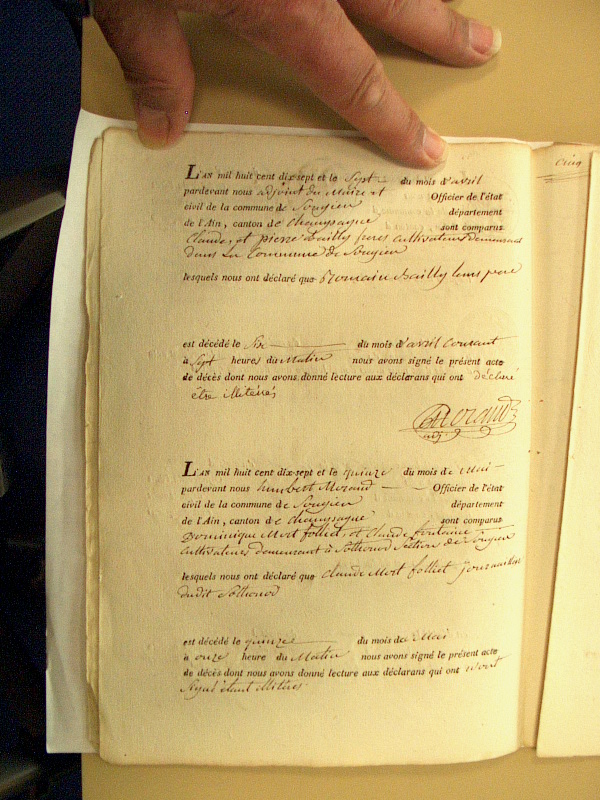 Cinq
L'AN mil huit cent dix-sept et le Sept du mois d'avril
pardevant nous adjoint du Maire et Officier de l'état
civil de la commune de Songieu département
de l'Ain, canton de Champagne sont comparus
Claude, et pierre Bailly freres cultivateurs demeurant
dans La Commune de Songieu
lesquels nous ont déclaré que Romain Bailly leur pere
est décédé le Six du mois d'avril Courant
à Sept heures du Matin nous avons signé le présent acte
de décès dont nous avons donné lecture aux déclarans qui ont déclaré
être illitérés
Morand
adj.
L'AN mil huit cent dix-sept et le quinze du mois de Mai
pardevant nous humbert Morand Officier de l'état
civil de la commune de Songieu département
de l'Ain, canton de Champagne sont comparus
Dominique Mort folliet, et Claude fontaine
cultivateurs demeurant à Sothonod Section de Songieu
lesquels nous ont déclaré que Claude Mort folliet
dudit Sothonod
est décédé le quinze du mois de Mai
à onze heure du Matin nous avons signé le présent acte
de décès dont nous avons donné lecture aux déclarans qui ont n'ont
Signé étant illitérés